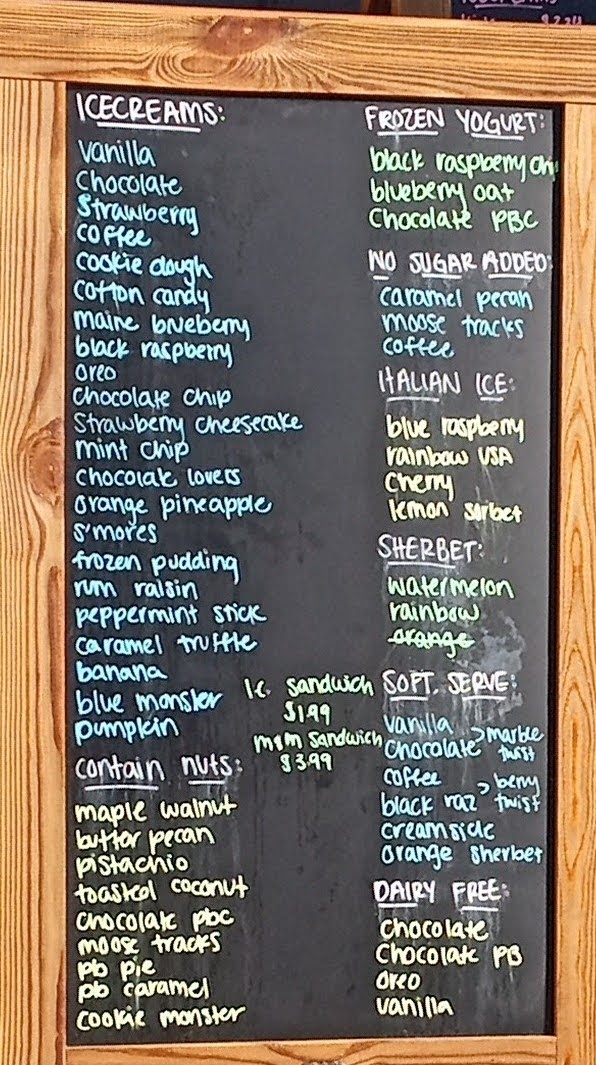 ICECREAMS:
vanilla
Chocolate
Strawberry
coffee
cookie dough
cotton candy
maine blueberry
black raspberry
oreo
chocolate chip
strawberry cheesecake
mint chip
chocolate lovers
orange pineapple
s'mores
frozen pudding
rum raisin
peppermint stick
caramel truffle
banana
blue monster
pumpkin
I.C. Sandwich
$1.99
M&M Sandwich
$3.99
contain nuts:
maple walnut
butter pecan
pistachio
toasted coconut
chocolate pbc
moose tracks
pb pie
pb caramel
cookie monster
FROZEN YOGURT:
black raspberry chi
blueberry oat
Chocolate PBC
NO SUGAR ADDED:
caramel pecan
moose tracks
coffee
ITALIAN ICE:
blue raspberry
rainbow USA
cherry
lemon sorbet
SHERBET:
watermelon
rainbow
orange
SOFT SERVE:
vanilla > marble
Chocolate twist
coffee
black raz > berry twist
creamsicle
orange sherbet
DAIRY FREE:
chocolate
Chocolate PB
oreo
vanilla